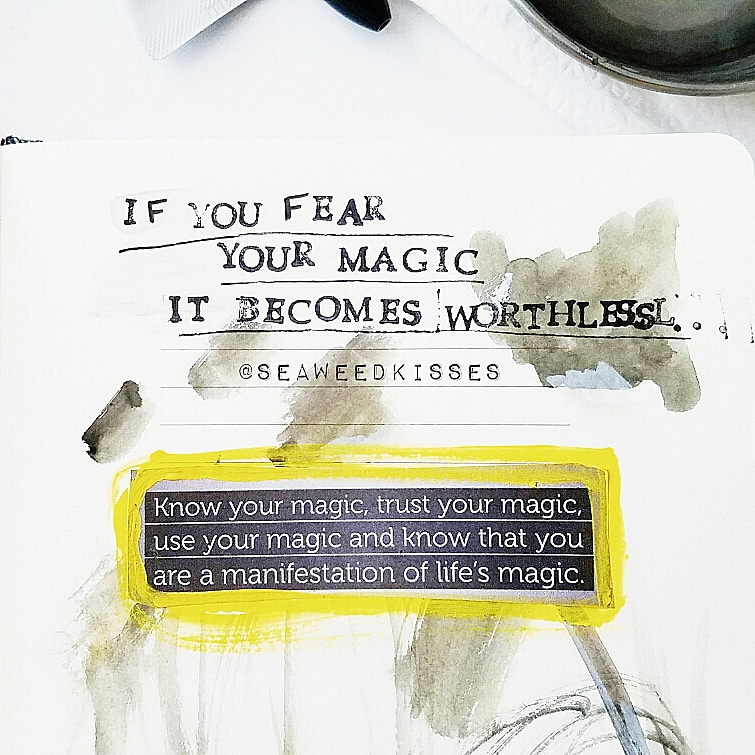 IF YOU FEAR
YOUR MAGIC
IT BECOMES WORTHLESS...
@SEAWEEDKISSES
Know your magic, trust your magic,
use your magic and know that you
are a manifestation of life's magic.